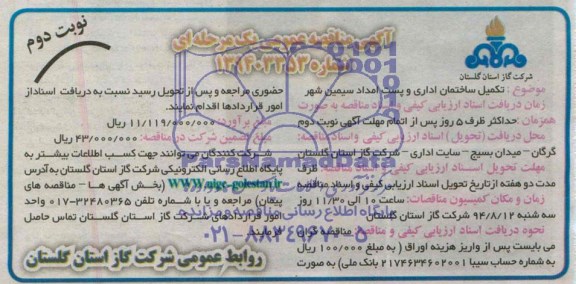 نوبت دوم
آگهی مناقصه عمومی یک مرحله ای
شماره
شرکت گاز استان گلستان
موضوع : تکمیل ساختمان اداری و پست امداد سیمین شهر
زمان دریافت اسناد ارزیابی کیفی و اسناد مناقصه به صورت
همزمان: حداکثر ظرف ۵ روز پس از اتمام مهلت آگهی نوبت دوم
محل دریافت (تحویل) اسناد ارزیابی کیفی و اسناد مناقصه:
گرگان – میدان بسیج – سایت اداری – شرکت گاز استان گلستان
مهلت تحویل اسناد ارزیابی کیفی و مناقصه: ظرف
مدت دو هفته از تاریخ تحویل اسناد ارزیابی کیفی و اسناد مناقصه
زمان و مکان کمیسیون مناقصات: ساعت ۱۰ الی ۱۱/۳۰ روز
سه شنبه ۹۴/۸/۱۲ شرکت گاز استان گلستان
نحوه دریافت اسناد ارزیابی کیفی و مناقصه: مناقصه گران
می بایست پس از واریز هزینه اوراق ( به مبلغ ۱۰۰/۰۰۰ ریال
به شماره حساب سیبا ۲۱۷۴۶۳۴۶۰۲۰۰۱ بانک ملی) به صورت
حضوری مراجعه و پس از تحویل رسید نسبت به دریافت اسناد از
امور قراردادها اقدام نمایند.
مبلغ برآورد: ۱۱/۱۱۹/۰۰۰/۰۰۰ ریال
مبلغ تضمین شرکت در مناقصه: ۴۳/۰۰۰/۰۰۰ ریال
شرکت کنندگان می توانند جهت کسب اطلاعات بیشتر به
پایگاه اطلاع رسانی الکترونیکی شرکت گاز استان گلستان به آدرس
www.nigc-golestan.ir (بخش آگهی ها – مناقصه های
پیمان) مراجعه و یا با شماره تلفن ۳۲۴۸۰۳۶۵-۰۱۷ واحد
امور قراردادهای شرکت گاز استان گلستان تماس حاصل
نمایند.
روابط عمومی شرکت گاز استان گلستان
ParsNamadData
پایگاه اطلاع رسانی مناقصه و مزایده
۰۲۱-۸۸۳۴۹۶۷۰-۵